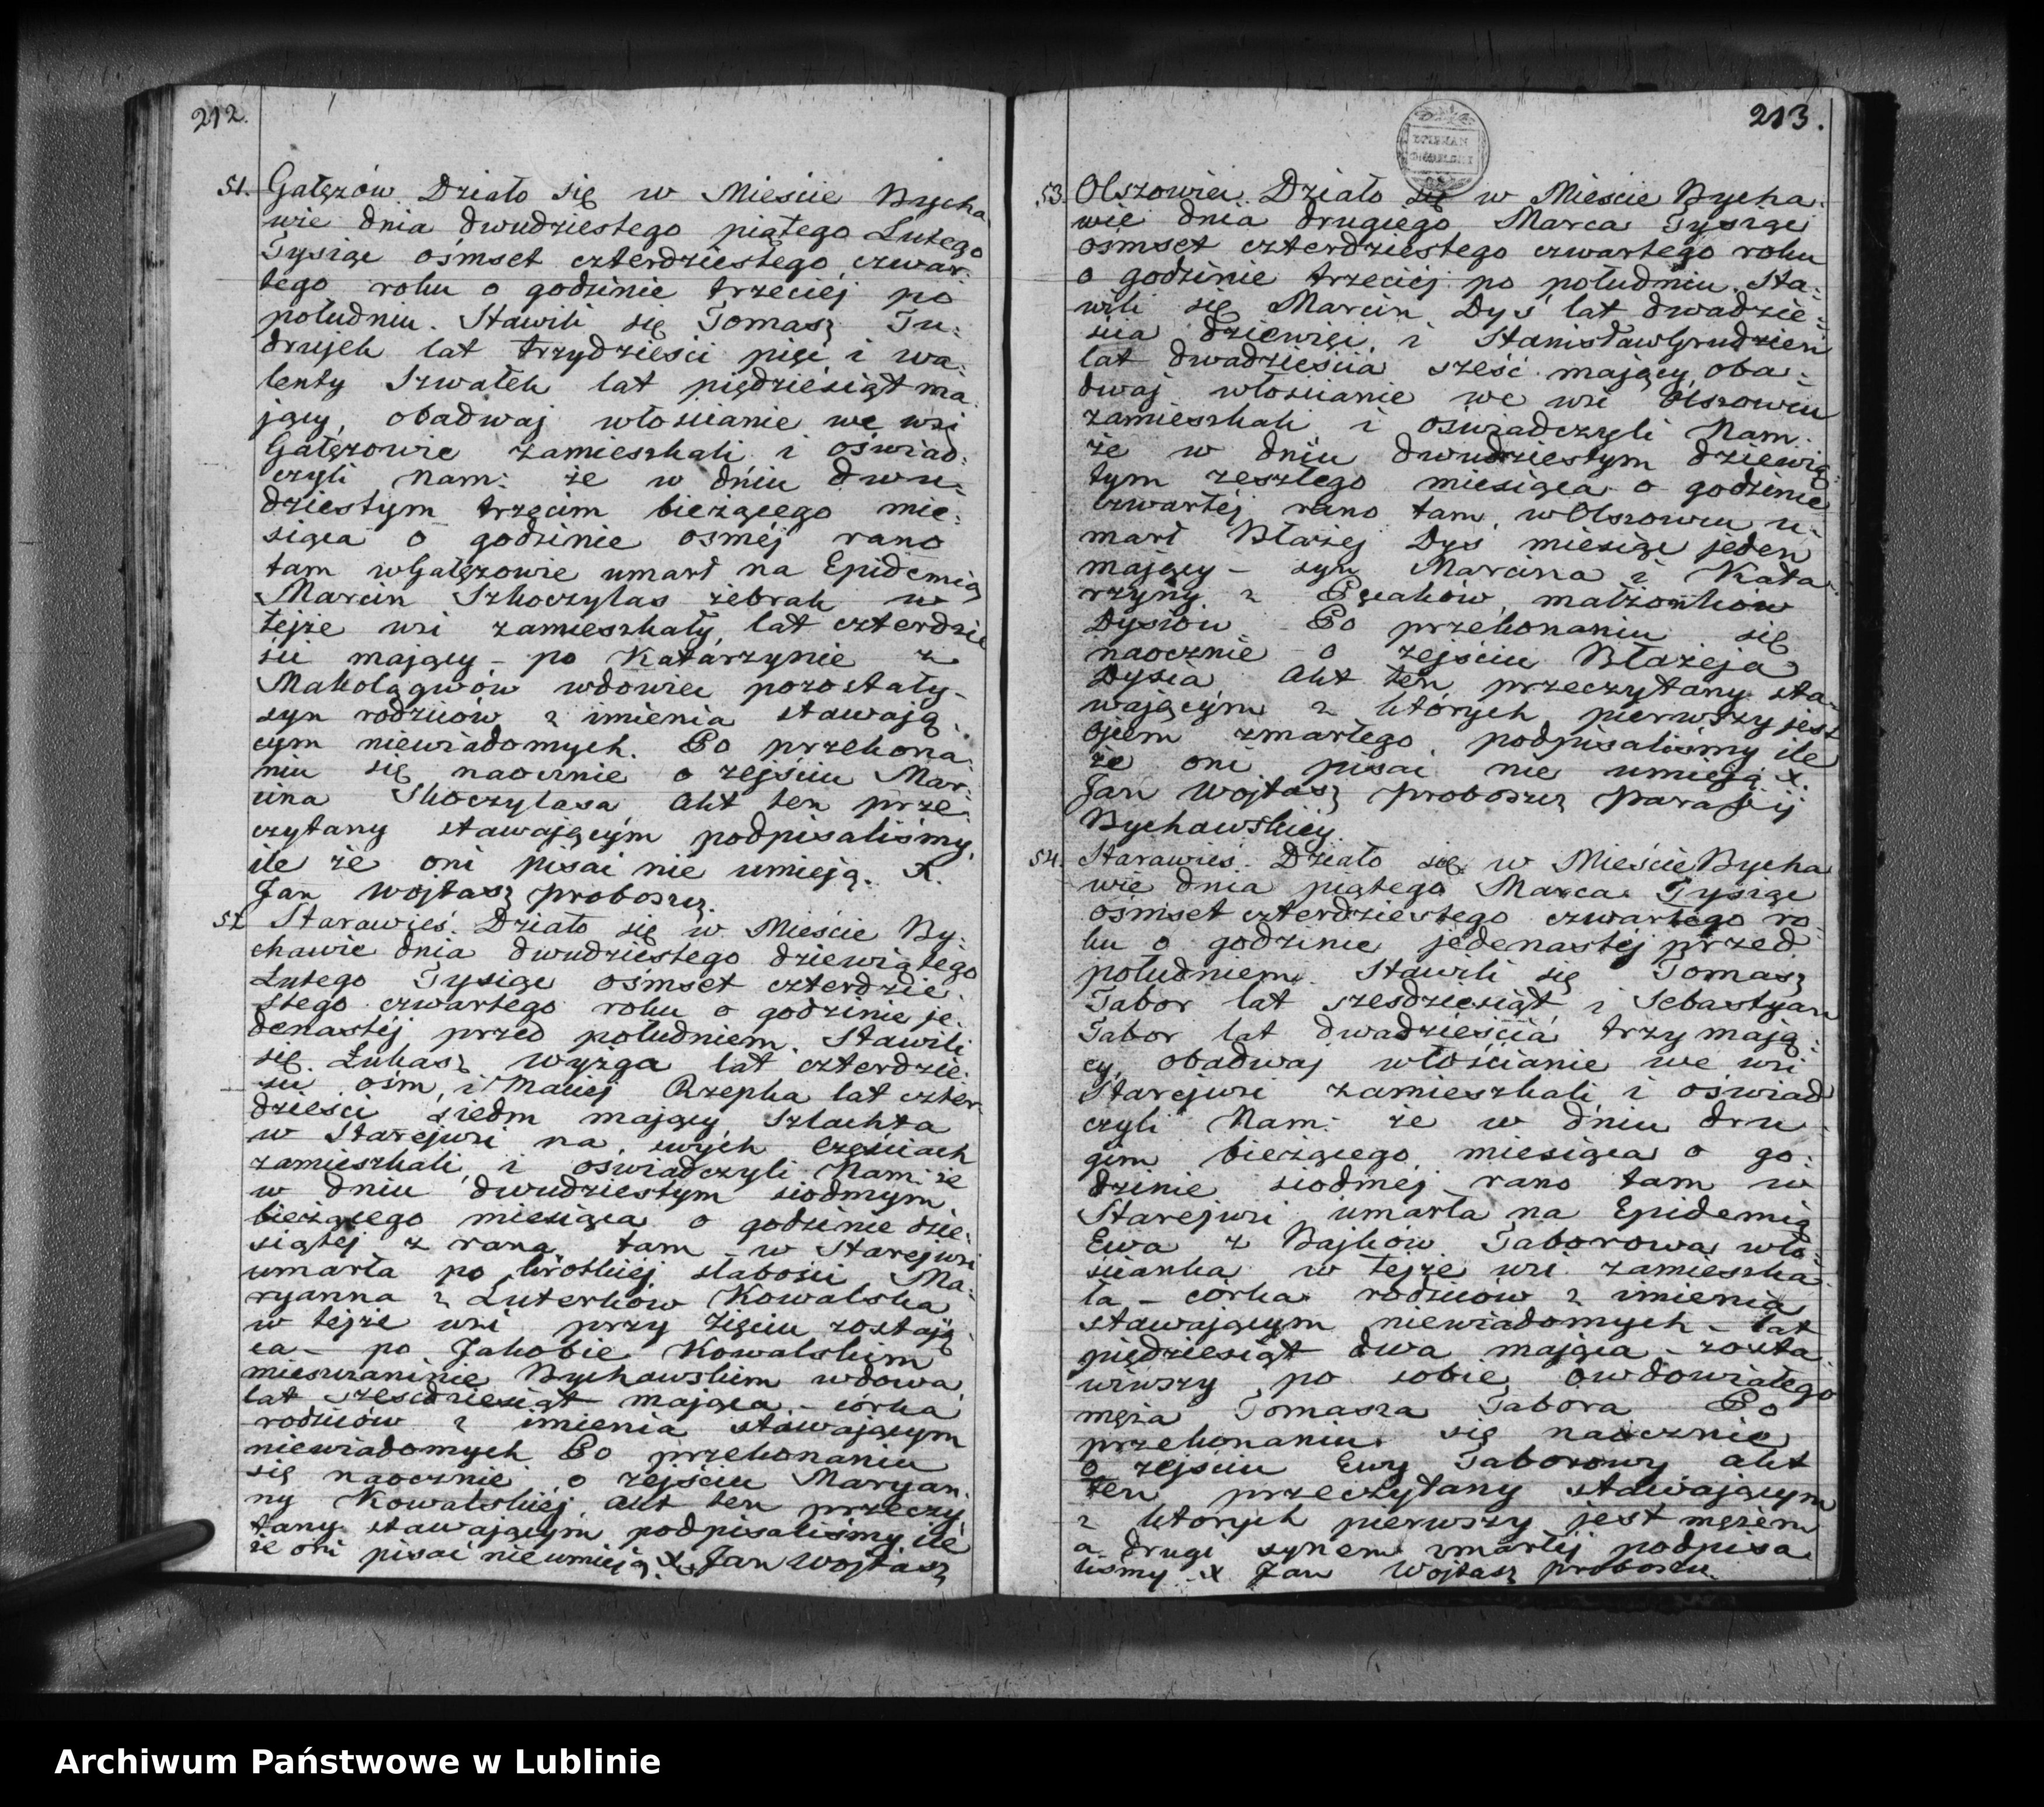 212.
51. Gałęzów. Działo się w Mieście Bycha
wie dnia dwudziestego piątego Lutego
Tysiąc ośmset czterdziestego czwar:
tego roku o godzinie trzeciej po
południu. Stawili się Tomasz Tu:
drujek lat trzydzieści pięć i Wa:
lenty Szwałek lat pięćdziesiąt ma
jący, obadwaj włościanie we wsi
Gałęzowie zamieszkali i oświad:
czyli nam: że w dniu dwu:
dziestym trzecim bieżącego mie:
siąca o godzinie osméj rano
tam w Gałęzowie umarł na Epidemią
Marcin Szkoczylas żebrak w
tejże wsi zamieszkały, lat czterdzie
ści mający – po Katarzynie z
Makolągwów wdowiec pozostały –
syn rodziców z imienia stawają
cym niewiadomych. Po przekona
niu się naocznie o zejściu Mar:
cina Skoczylasa Akt ten prze
czytany stawającym podpisaliśmy,
ile że oni pisać nie umieją. X.
Jan Wojtasz proboszcz.
52 Starawieś. Działo się w Mieście By:
chawie dnia dwudziestego dziewiątego
Lutego Tysiąc ośmset czterdzie
stego czwartego roku o godzinie je
denastéj przed południem. Stawili
się Łukasz Wyżga lat czterdzie:
ści ośm, i Maciej Rzepka lat czter
dzieści siedm mający Szlachta
w Starejwsi na swych Częściach
zamieszkali, i oświadczyli Nam: że
w dniu dwudziestym siodmym
bieżącego miesiąca o godzinie dzie:
siątej z rana, tam w Starejwsi
umarła po krótkiej słabości Ma:
ryanna z Luterków Kowalska
w tejże wsi przy zięciu zostają
ca – po Jakobie Kowalskim
mieszczaninie Bychawskim wdowa
lat sześćdziesiąt mająca – córka
rodziców z imienia stawającym
niewiadomych Po przekonaniu
się naocznie o zejściu Maryan:
ny Kowalskiéj, Akt ten przeczy
tany stawającym podpisaliśmy, ile
że oni pisać nie umieją. X. Jan Wojtasz
213.
53. Olszowiec. Działo się w Mieście Bycha
wie dnia drugiego Marca Tysiąc
ośmset czterdziestego czwartego roku
o godzinie trzeciéj po południu. Sta:
wili się Marcin Dyś lat dwadzie:
ścia dziewięć, i Stanisław Grudzień
lat dwadzieścia sześć mający, oba:
dwaj włościanie we wsi Olszowcu
zamieszkali i oświadczyli Nam:
że w dniu dwudziestym dziewią
tym zeszłego miesiąca o godzinie
czwartéj rano tam w Olszowcu u:
marł Błażej Dyś miesiąc jeden
mający – syn Marcina i Kata
rzyny z małżonków
Dysiów Po przekonaniu się
naocznie o zejściu Błażeja
Dysia, Akt ten przeczytany sta
wającym z których pierwszy jest
ojcem zmarłego, podpisaliśmy ile
że oni pisać nie umieją X.
Jan Wojtasz proboszcz Parafij
Bychawskiéj.
54. Starawieś. Działo się w Mieście Bycha
wie dnia piątego Marca Tysiąc
ośmset czterdziestego czwartego ro
ku o godzinie jedenastéj przed
południem. Stawili się Tomasz
Tabor lat sześdziesiąt i Sebastyan
Tabor lat dwadzieścia trzy mają
cy, obadwaj włościanie we wsi
Starejwsi zamieszkali i oświad
czyli Nam: że w dniu dru
gim bieżącego miesiąca o go:
dzinie siodmej rano tam w
Starejwsi umarła na Epidemią
Ewa z Bajków Taborowa wło:
ścianka w tejże wsi zamieszka
ła – córka rodziców z imienia
stawającym niewiadomych – lat
pięćdziesiąt dwa mająca – zosta
wiwszy po sobie owdowiałego
męża Tomasza Tabora Po
przekonaniu się naocznie
o zejściu Ewy Taborowy akt
ten przeczytany stawającym
z których pierwszy jest mężem
a drugi synem zmarłéj podpisa
liśmy X Jan Wojtasz proboszcz
Archiwum Państwowe w Lublinie